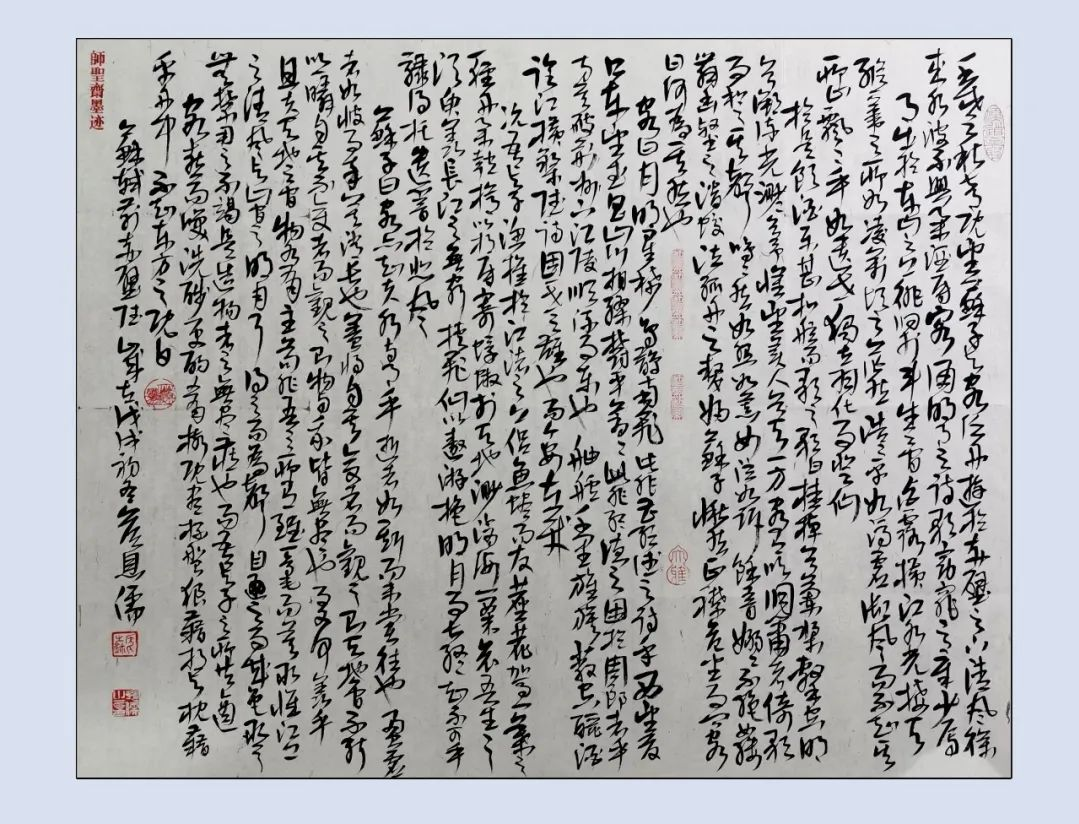 壬戌之秋七月既望蘇子与客泛舟遊於赤壁之下清風徐
来水波不興舉酒屬客誦明月之詩歌窈窕之章少焉
月出於東山之上徘徊於斗牛之间白露橫江水光接天
縱一葦之所如凌萬頃之茫然浩浩乎如馮虛御風而不知其
所止飄飄乎如遺世獨立羽化而登仙
於是飲酒樂甚扣舷而歌之歌曰桂棹兮蘭槳擊空明
兮溯流光渺渺兮予懷望美人兮天一方客有吹洞簫者倚歌
而和之其聲嗚嗚然如怨如慕如泣如訴餘音嫋嫋不絕如縷
舞幽壑之潛蛟泣孤舟之嫠婦蘇子愀然正襟危坐而問客
曰何爲其然也
客曰月明星稀烏鵲南飛此非孟德之詩乎西望夏
口東望武昌山川相繆鬱乎蒼蒼此非孟德之困於周郎者乎
方其破荆州下江陵順流而東也舳艫千里旌旗蔽空釃酒
臨江橫槊賦詩固一世之雄也而今安在哉
況吾与子漁樵於江渚之上侣魚蝦而友麋鹿駕一葉之
扁舟舉匏樽以相屬寄蜉蝣於天地渺滄海一粟哀吾生之
須臾羨長江之無窮挾飛仙以遨游抱明月而長終知不可乎
驟得托遺響於悲風
蘇子曰客亦知夫水与月乎逝者如斯而未嘗往也盈虛
者如彼而卒莫消長也蓋將自其變者而觀之則天地曾不能
以一瞬自其不變者而觀之則物与我皆無盡也而又何羨乎
且夫天地之间物各有主苟非吾之所有雖一毫而莫取惟江上
之清風与山间之明月耳得之而爲聲目遇之而成色取之
無禁用之不竭是造物者之無盡藏也而吾与子之所共適
客喜而笑洗盞更酌肴核既盡杯盤狼藉相与枕藉
乎舟中不知東方之既白
蘇軾前赤壁賦歲在戊戌初冬
師聖齋墨迹
大雅